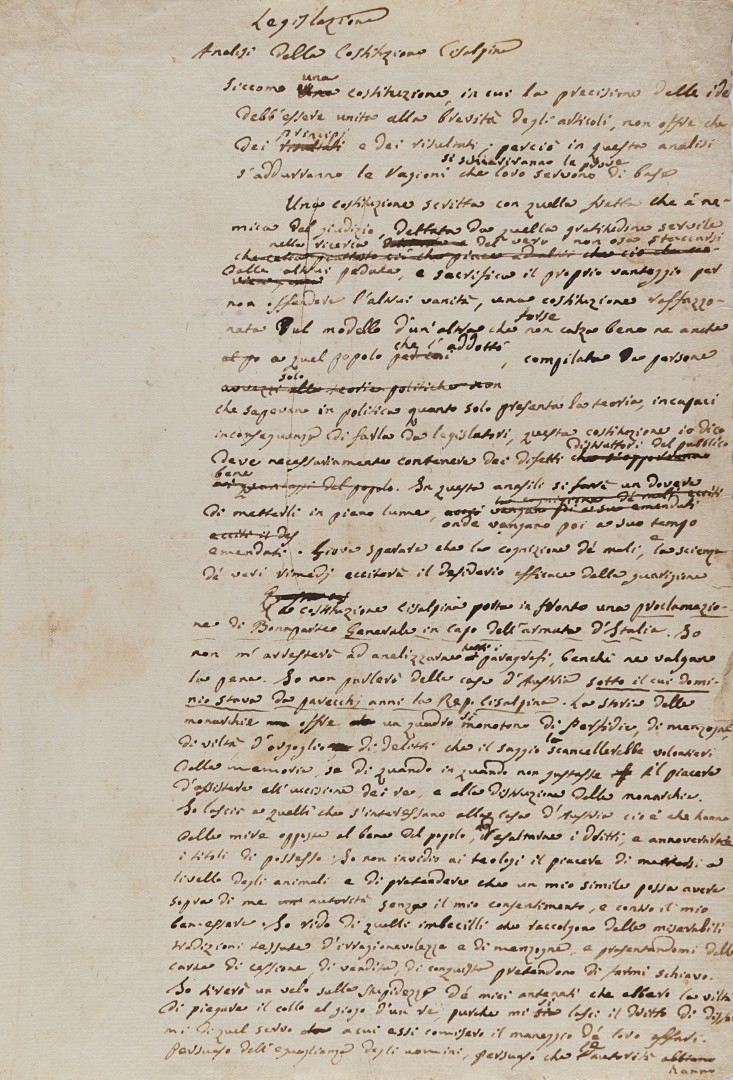 Legislazione
Analisi della Costituzione Cisalpina
Siccome una costituzione, in cui la precisione delle idee
debb'essere unita alla brevità degli articoli, non offre che
dei principj e dei risultati; perciò in questa analisi si schiariranno le prove
s'addurranno le ragioni che loro servono di base
Una costituzione scritta con quella fretta che è ne-
mica del giudizio, dettata da quella gratitudine servile
nella ricerca del vero non osa staccarsi
dalle altrui pedate, e sacrifica il proprio vantaggio per
non offendere l'altrui vanità, una costituzione raffazzo-
nata sul modello d'un'altra che forse non calza bene ne anche
a quel popolo che l'addottò, compilata da persone
che sapevano in politica quanto solo presenta la teoria, incapaci
in conseguenza di farla da legislatori, questa costituzione io dico
deve necessariamente contenere dei difetti distruttori del pubblico
bene. In questa analisi si farà un dovere
di metterli in pieno lume,
onde vengano poi a suo tempo
emendati. Giova sperare che la cognizione de' mali, e la scienza
de' veri rimedj ecciterà il desiderio efficace della guarigione
La costituzione Cisalpina porta in fronte una proclamazio-
ne di Bonaparte Generale in capo dell'armata d'Italia. Io
non m'arresterò ad analizzarne tutti i paragrafi, benchè ne valgano
la pena. Io non parlerò della casa d'Austria sotto il cui domi-
nio stava da parecchj anni la Rep. Cisalpina. La storia delle
monarchie offre un quadro sì monotono di perfidie, di menzogne,
di viltà d'orgoglio di delitti che il saggio la scancellerebbe volontieri
dalla memoria, se di quando in quando non gustasse il piacere
d'assistere all'uccisione dei re, e alla distruzione delle monarchie.
Io lascio a quelli che s'interessano alla casa d'Austria cioè che hanno
delle mire opposte al bene del popolo, d'esaltarne i dritti, e annoverarne
i titoli di possesso. Io non invidio ai teologi il piacere di mettersi a
livello degli animali e di pretendere che un mio simile possa avere
sopra di me autorità senza il mio consentimento, e contro il mio
ben-essere. Io rido di quelli imbecilli che raccolgono delle miserabili
tradizioni tessute d'irragionevolezza e di menzogne, e presentandomi delle
carte di cessione, di vendita, di conquista pretendono di farmi schiavo.
Io tirerò un velo sulla stupidezza de' miei antenati che ebbero la viltà
di piegare il collo al giogo d'un re, purchè mi si lasci il dritto di disfar-
mi di quel servo a cui essi commisero il maneggio de' loro affari.
Persuaso dell'eguaglianza degli uomini, persuaso che l'autorità
hanno